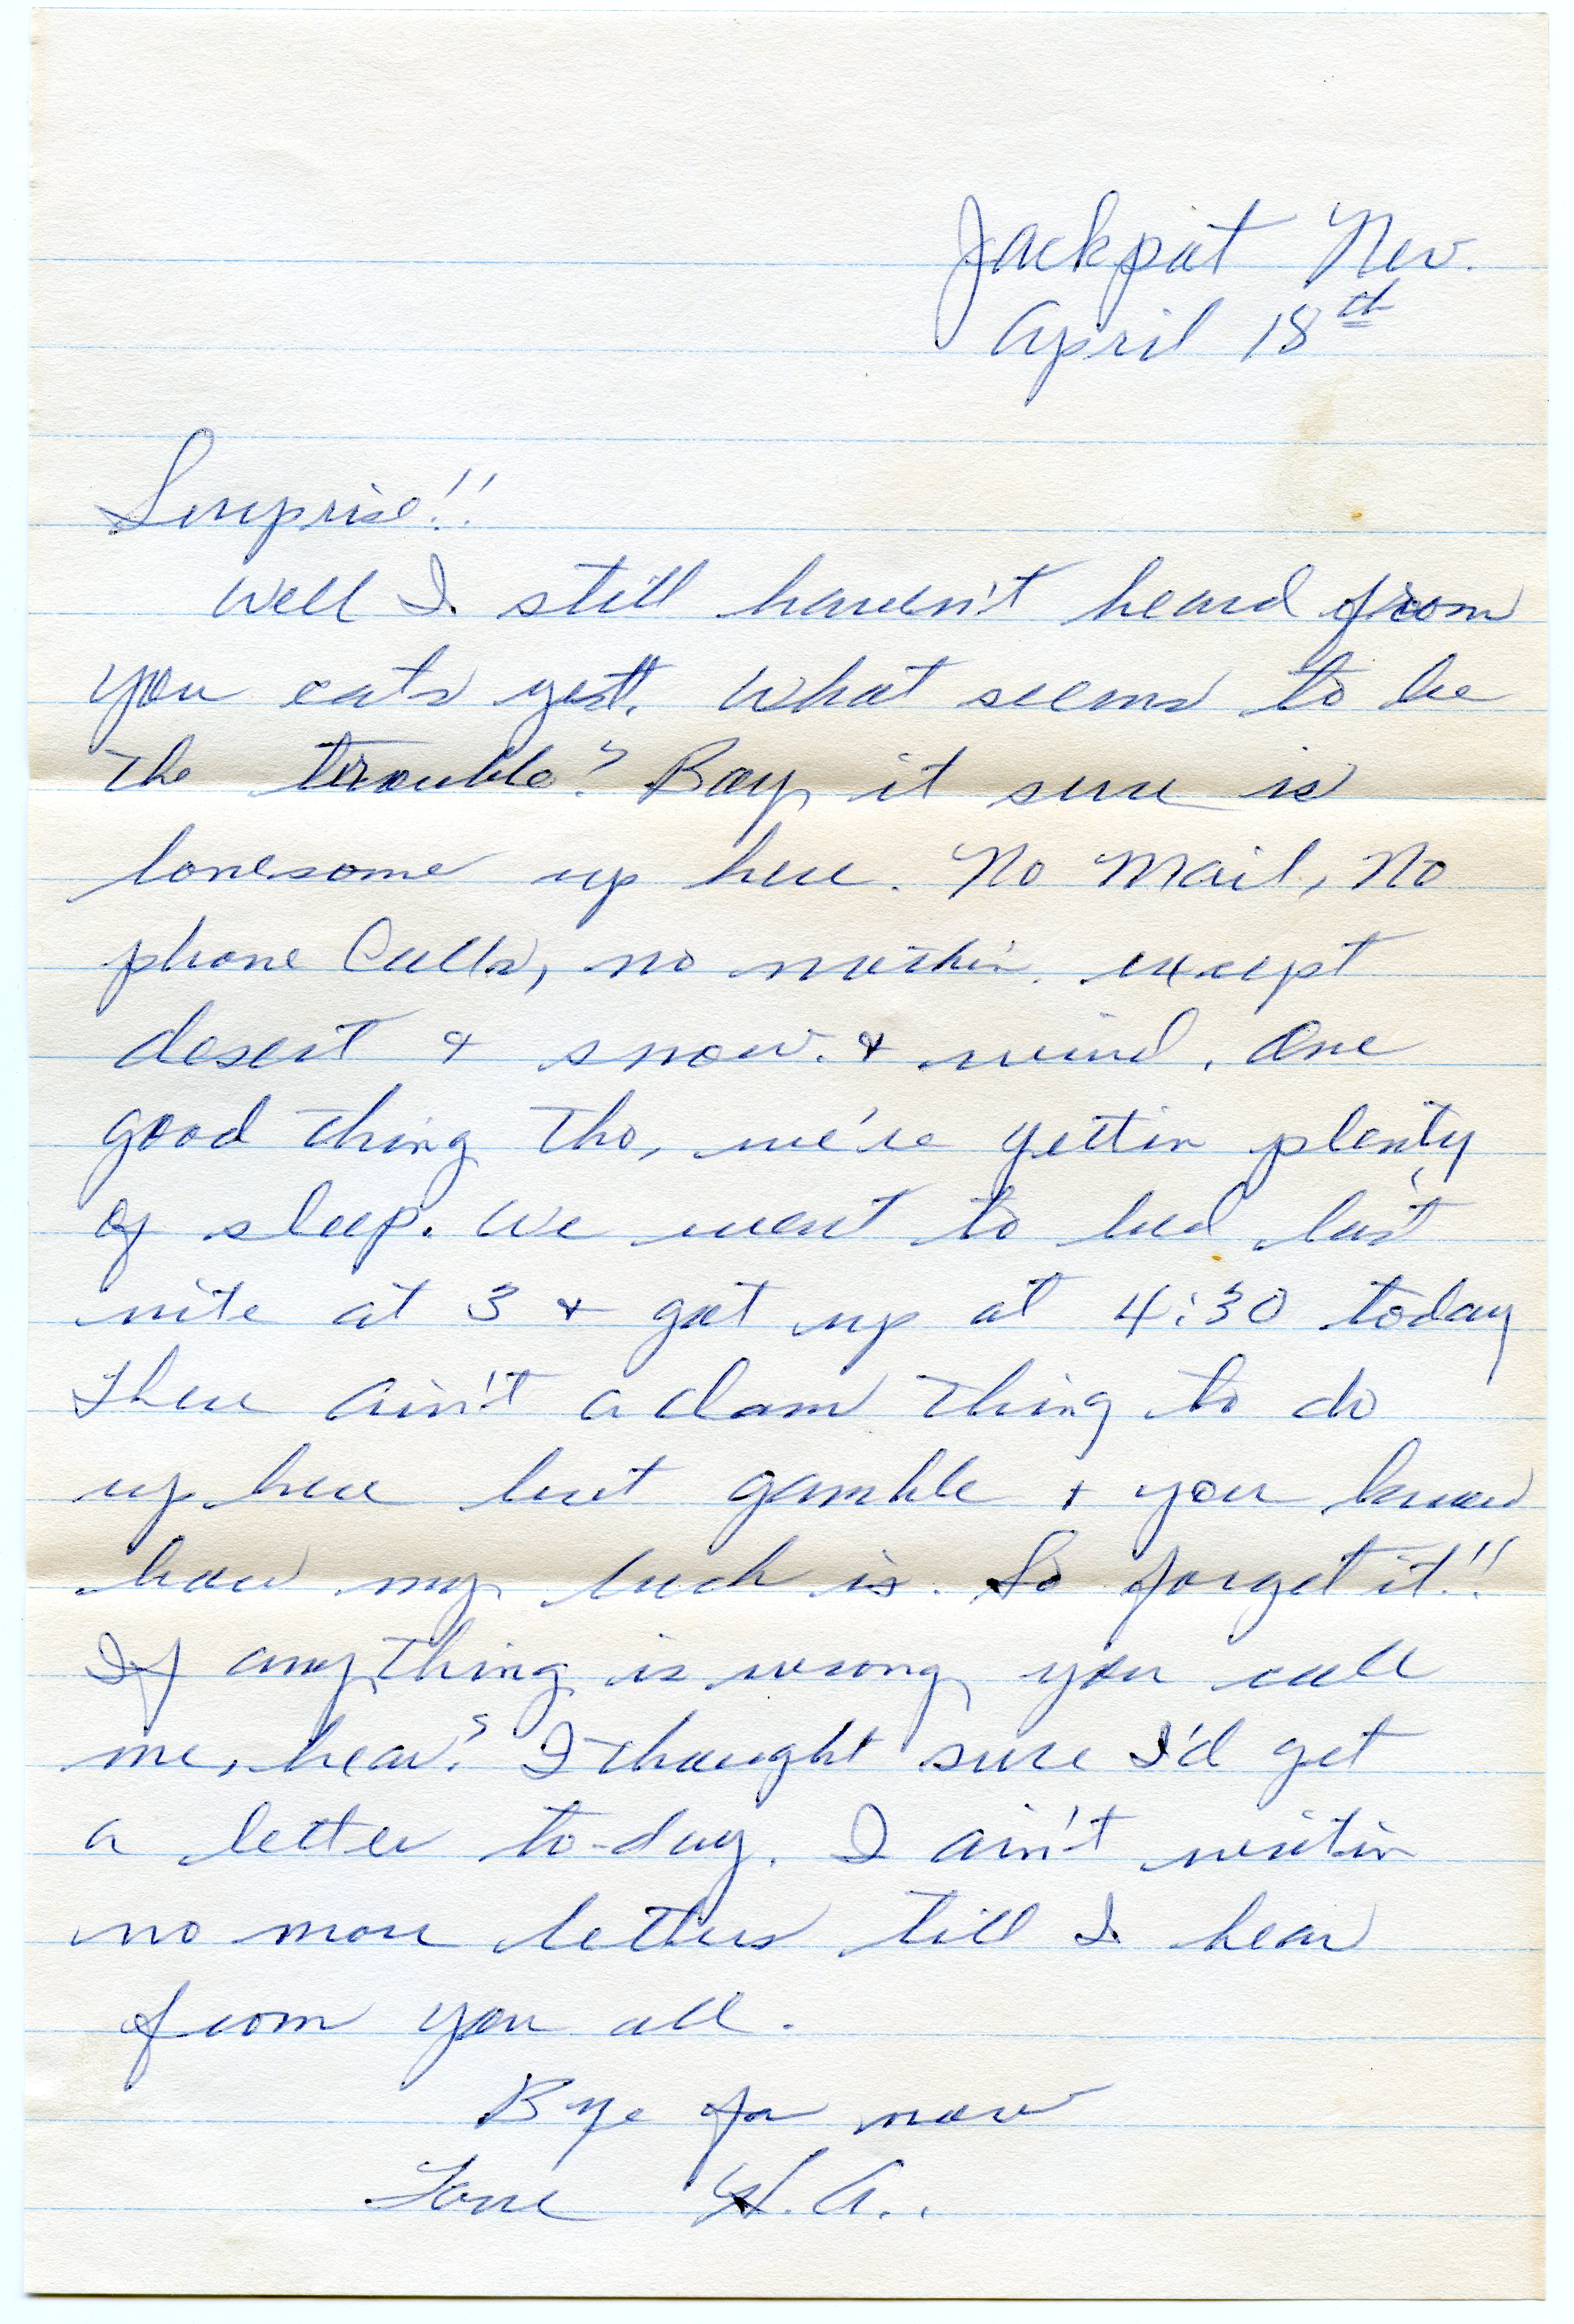 Jackpot Nev.
April 18th
Surprise!!
Well I still haven't heard from
you cats yet. What seems to be
the trouble? Boy it sure is
lonesome up here. No Mail, No
phone Calls, no nuthin. except
desert & snow. & wind. One
good thing tho, we're gettin plenty
of sleep. We went to bed last
nite at 3 & got up at 4:30 today
There ain't a dam thing to do
up here but gamble & you know
how my luck is. So forget it!!
If anything is wrong you call
me, hear? I thought sure I'd get
a letter to-day. I ain't writin
no more letters till I hear
from you all.
Bye for now
Love H.A..